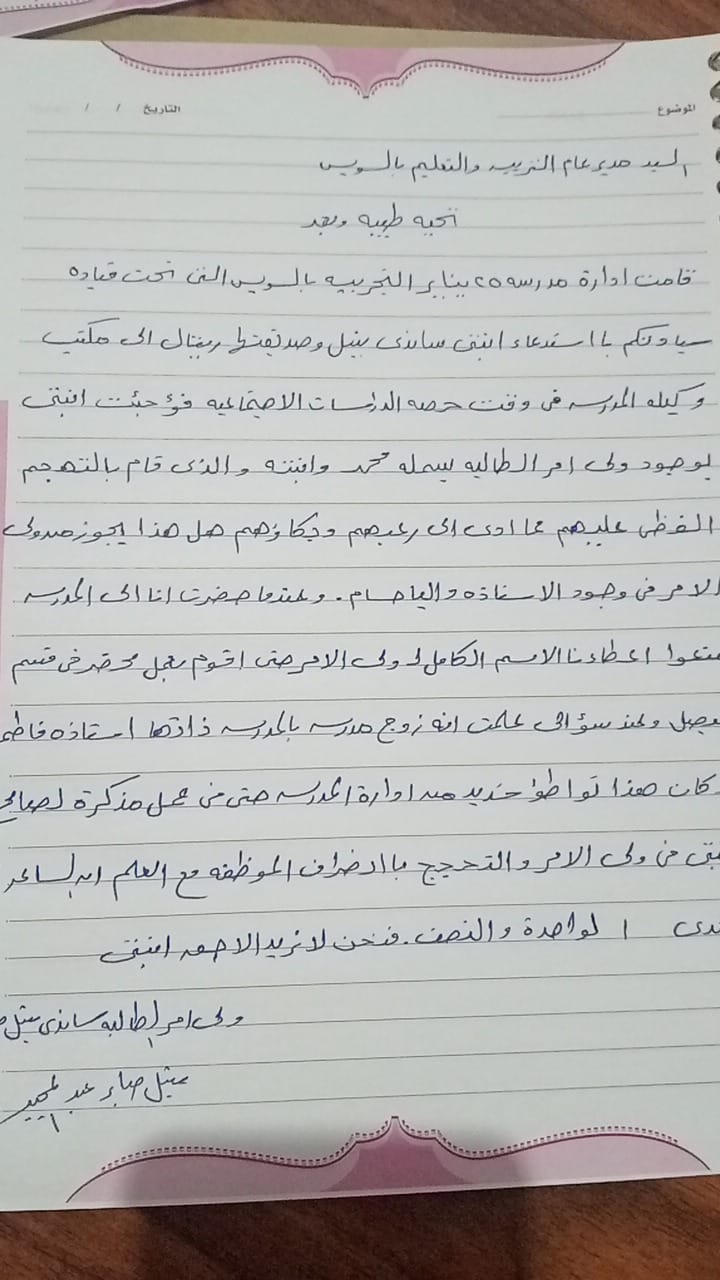 الموضوع
التاريخ / /
السيد مدير عام التربيه والتعليم بالسويس
تحيه طيبه وبعد
قامت ادارة مدرسه ٢٥ يناير التجريبيه بالسويس التى تحت قياده
سيادتكم بااستدعاء ابنتى ساندى وصديقتها ريتال الى مكتب
وكيله المدرسه فى وقت حصه الدراسات الاجتماعيه فؤجئت ابنتى
بوجود ولى امر الطالبه بسمله محمد وابنته والذى قام بالتهجم
الفظى عليهم مما ادى الى رعبهم وبكاؤهم هل هذا يجوز من ولى
الامر فى وجود الاستاذه و. وعندما حضرت انا الى المدرسه
منعوا اعطاءنا الاسم الكامل لولى الامر حتى اقوم بعمل محضر فى قسم
فيصل وعند سؤالى علمت انه زوج مدرسه بالمدرسه ذاتها استاذه
كان هذا تواطؤ من ادارة المدرسه حتى من عمل مذكرة لصالح
من ولى الامر والتحجج باانصراف الموظفه مع العلم ان الساعه
الواحدة والنصف. فنحن لا نريد الا حق ابنتى
ولى امر الطالبه ساندى
صابر عبد